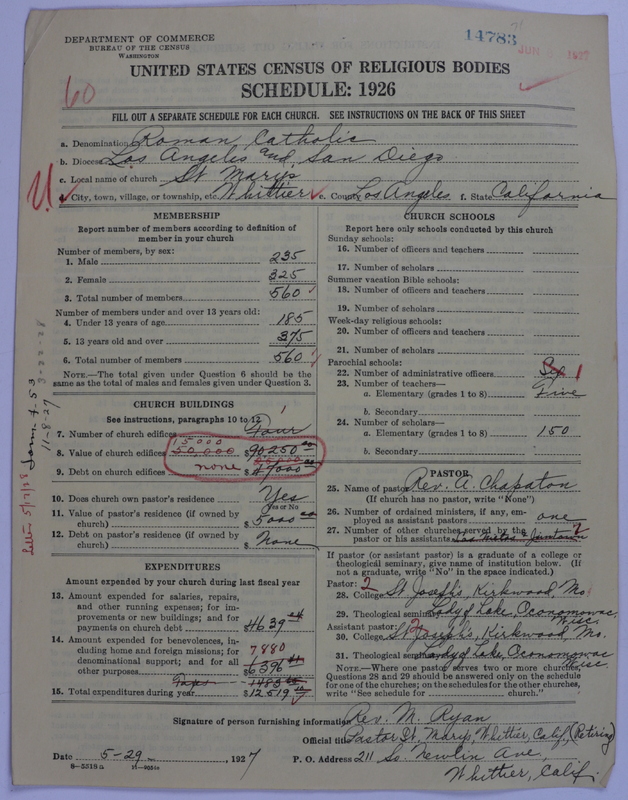 14783
DEPARTMENT OF COMMERCE
BUREAU OF THE CENSUS
WASHINGTON
UNITED STATES CENSUS OF RELIGIOUS BODIES
SCHEDULE: 1926
60
FILL OUT A SEPARATE SCHEDULE FOR EACH CHURCH. SEE INSTRUCTIONS ON THE BACK OF THIS SHEET
a. Denomination Roman Catholic
b. Diocese Los Angeles and San Diego
c. Local name of church St Marys
d. City, town, village, or township, etc. Whittier e. County Los Angeles f. State California
MEMBERSHIP
Report number of members according to definition of
member in your church
Number of members, by sex:
1. Male 235
2. Female 325
3. Total number of members 560
Number of members under and over 13 years old:
4. Under 13 years of age 185
5. 13 years old and over 375
6. Total number of members 560
NOTE.—The total given under Question 6 should be the
same as the total of males and females given under Question 3.
CHURCH BUILDINGS
See instructions, paragraphs 10 to 12
7. Number of church edifices Four 1
8. Value of church edifices 50,000 $90250 00
9. Debt on church edifices none $47000 00
10. Does church own pastor's residence Yes
Yes or No
11. Value of pastor's residence (if owned by
church) $5000 00
12. Debt on pastor's residence (if owned by
church) $None
EXPENDITURES
Amount expended by your church during last fiscal year
13. Amount expended for salaries, repairs,
and other running expenses; for im-
provements or new buildings; and for
payments on church debt $4639
14. Amount expended for benevolences, in-
cluding home and foreign missions; for
denominational support; and for all
other purposes 7880 $6396
Taxes 1483
15. Total expenditures during year $12519
CHURCH SCHOOLS
Report here only schools conducted by this church
Sunday schools:
16. Number of officers and teachers
17. Number of scholars
Summer vacation Bible schools:
18. Number of officers and teachers
19. Number of scholars
Week-day religious schools:
20. Number of officers and teachers
21. Number of scholars
Parochial schools:
22. Number of administrative officers 1
23. Number of teachers—
a. Elementary (grades 1 to 8) Five
b. Secondary
24. Number of scholars—
a. Elementary (grades 1 to 8) 150
b. Secondary
PASTOR
25. Name of pastor Rev. A. Chapaton
(If church has no pastor, write "None")
26. Number of ordained ministers, if any, em-
ployed as assistant pastors one
27. Number of other churches served by the
pastor or his assistants 2
If pastor (or assistant pastor) is a graduate of a college or
theological seminary, give name of institution below. (If
not a graduate, write "No" in the space indicated.)
Pastor: 2
28. College St Joseph's, Kirkwood, Mo.
29. Theological seminary Lady of Lake, Oconomowoc, Wisc.
Assistant pastor: 2
30. College St Joseph's, Kirkwood, Mo.
31. Theological seminary Lady of Lake, Oconomowoc Wisc
NOTE.—Where one pastor serves two or more churches,
Questions 28 and 29 should be answered only on the schedule
for one of the churches; on the schedules for the other churches,
write "See schedule for ........ church."
Signature of person furnishing information Rev. M. Ryan
Official title Pastor St. Marys, Whittier, Calif. (Retiring)
Date 5-29, 1927 P. O. Address 211 So. Newlin Ave.,
8-5518a
Whittier, Calif.
11-8-27
Letter 5/7/28